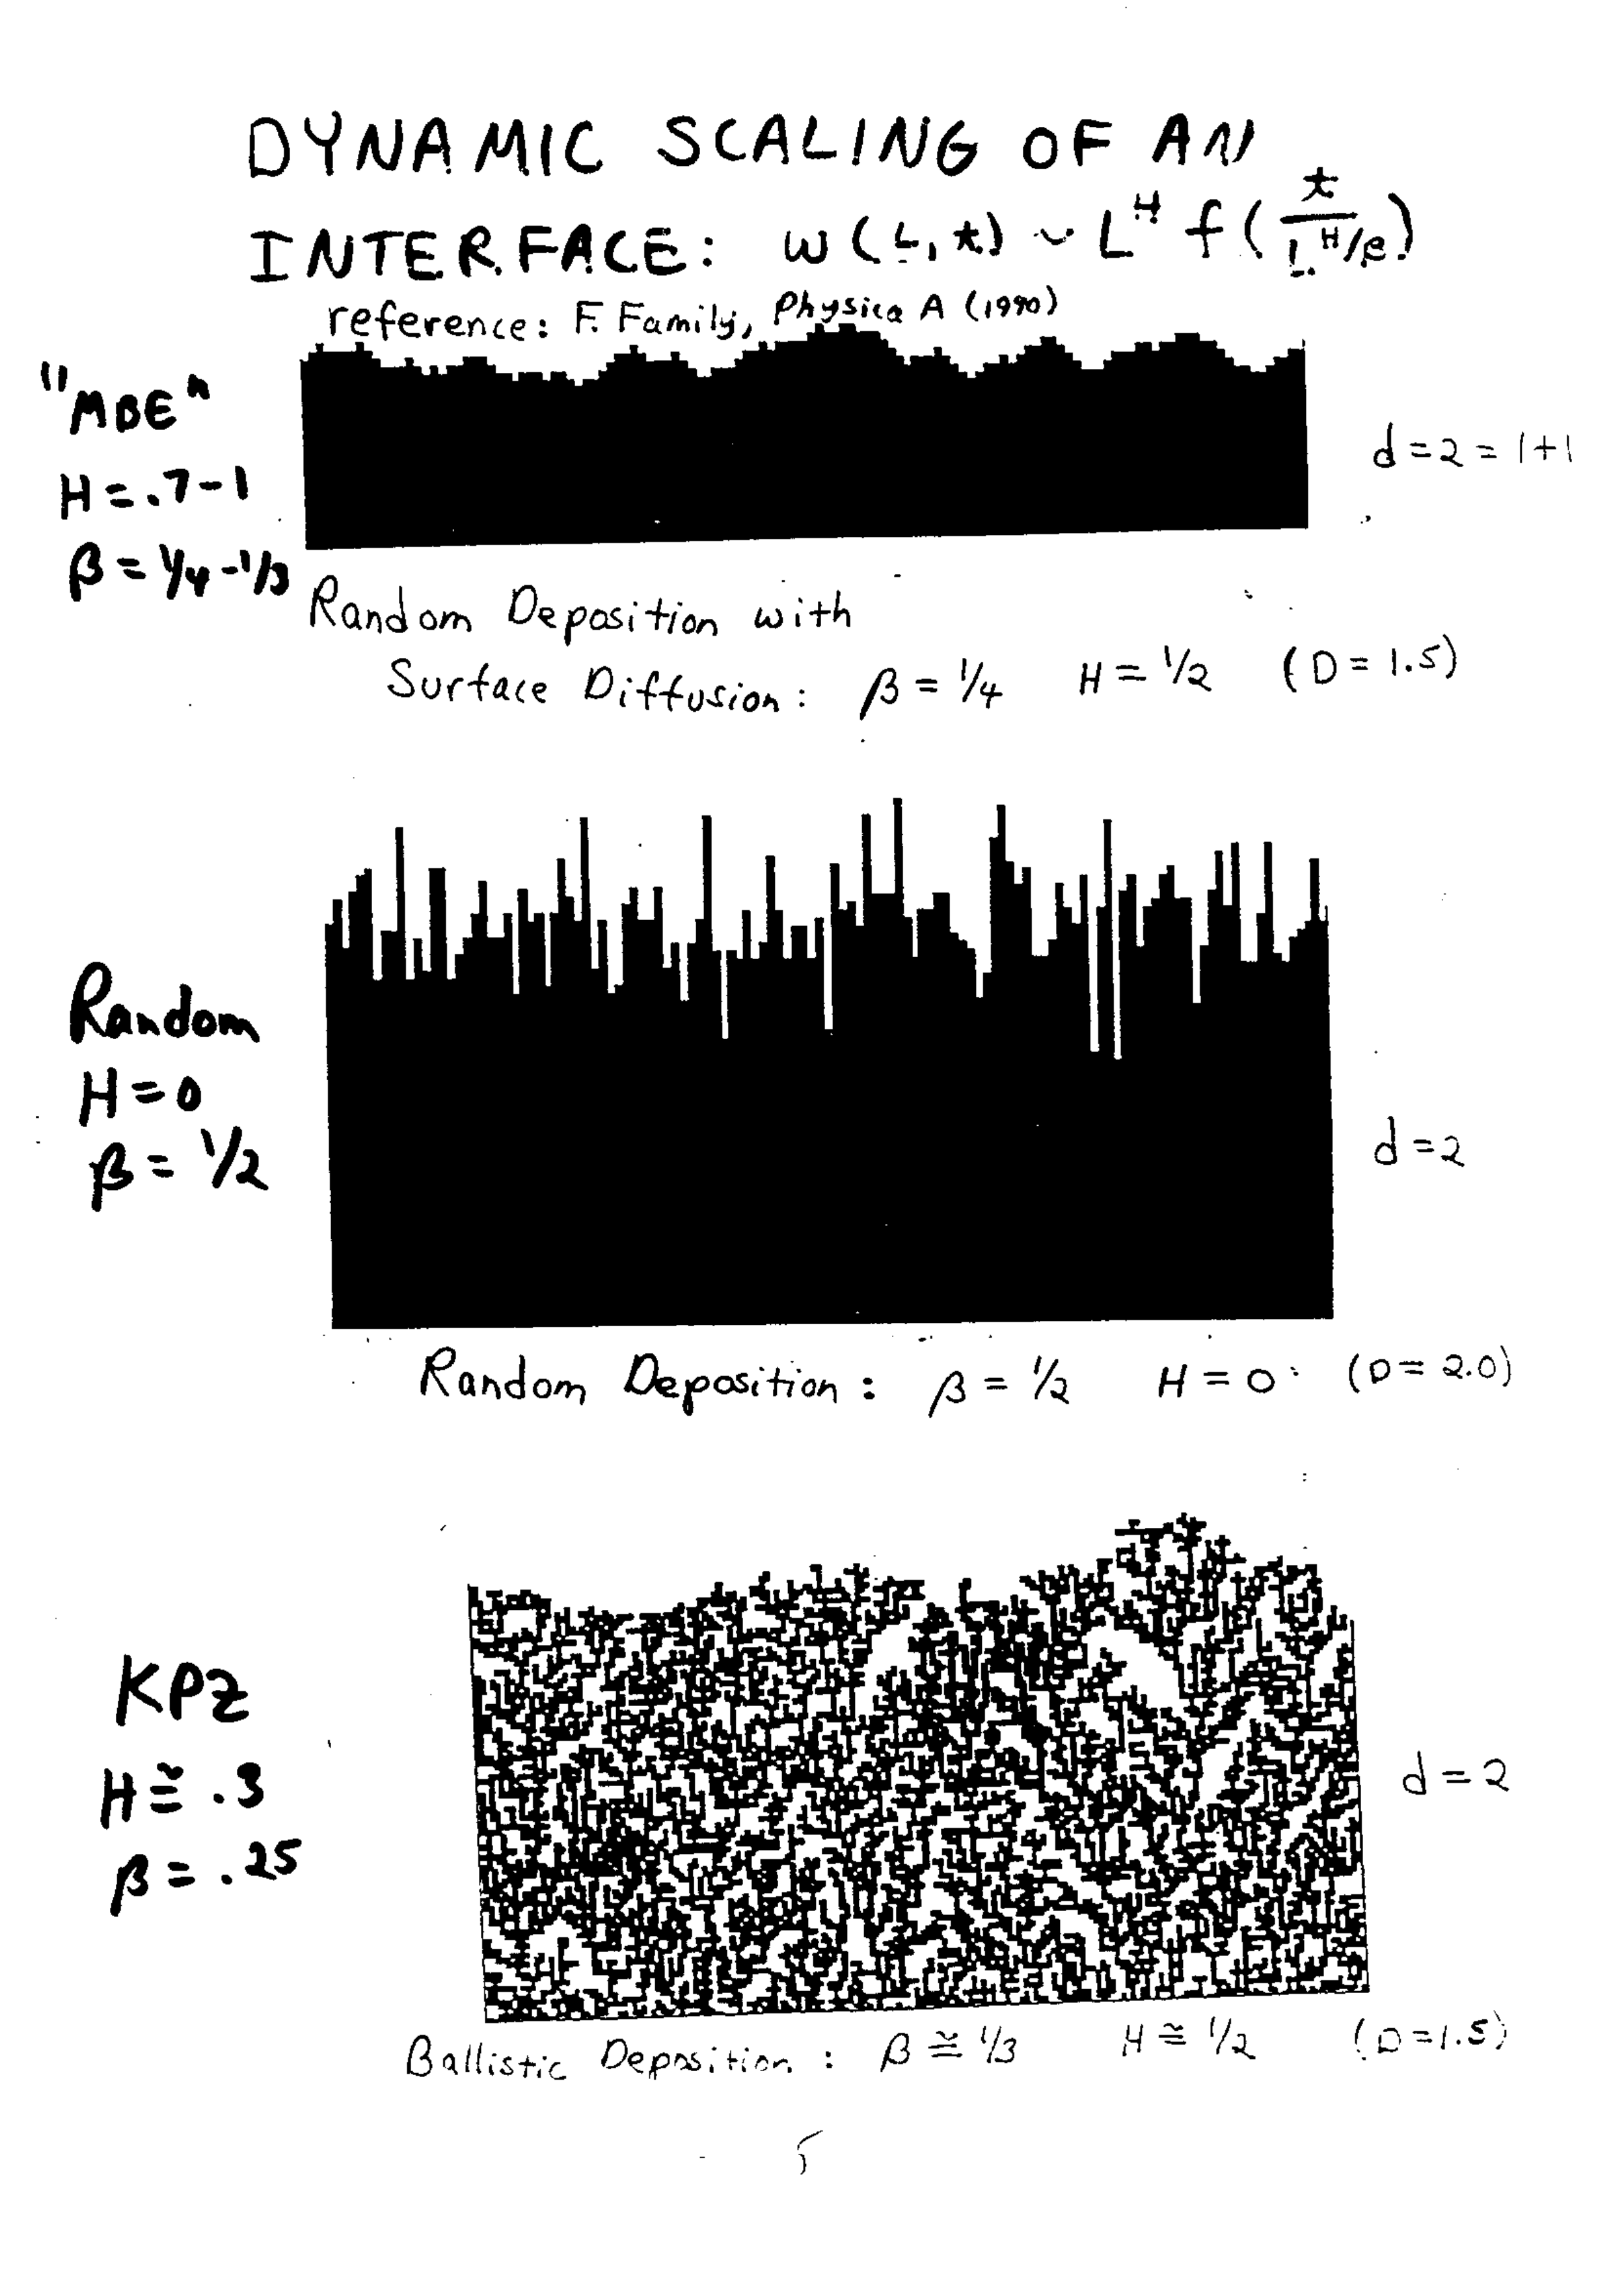 DYNAMIC SCALING OF AN
INTERFACE: w(L,t) ~ L^H f(t/L^H/β)
reference: F. Family, Physica A (1990)
"MBE"
H = .7-1
β = 1/4-1/3
d=2=1+1
Random Deposition with
Surface Diffusion: β = 1/4 H = 1/2 (D = 1.5)
Random
H=0
β = 1/2
d=2
Random Deposition: β = 1/2 H = 0 (D = 2.0)
KPZ
H ≅ .3
β = .25
d=2
Ballistic Deposition: β ≅ 1/3 H ≅ 1/2 (D=1.5)
5